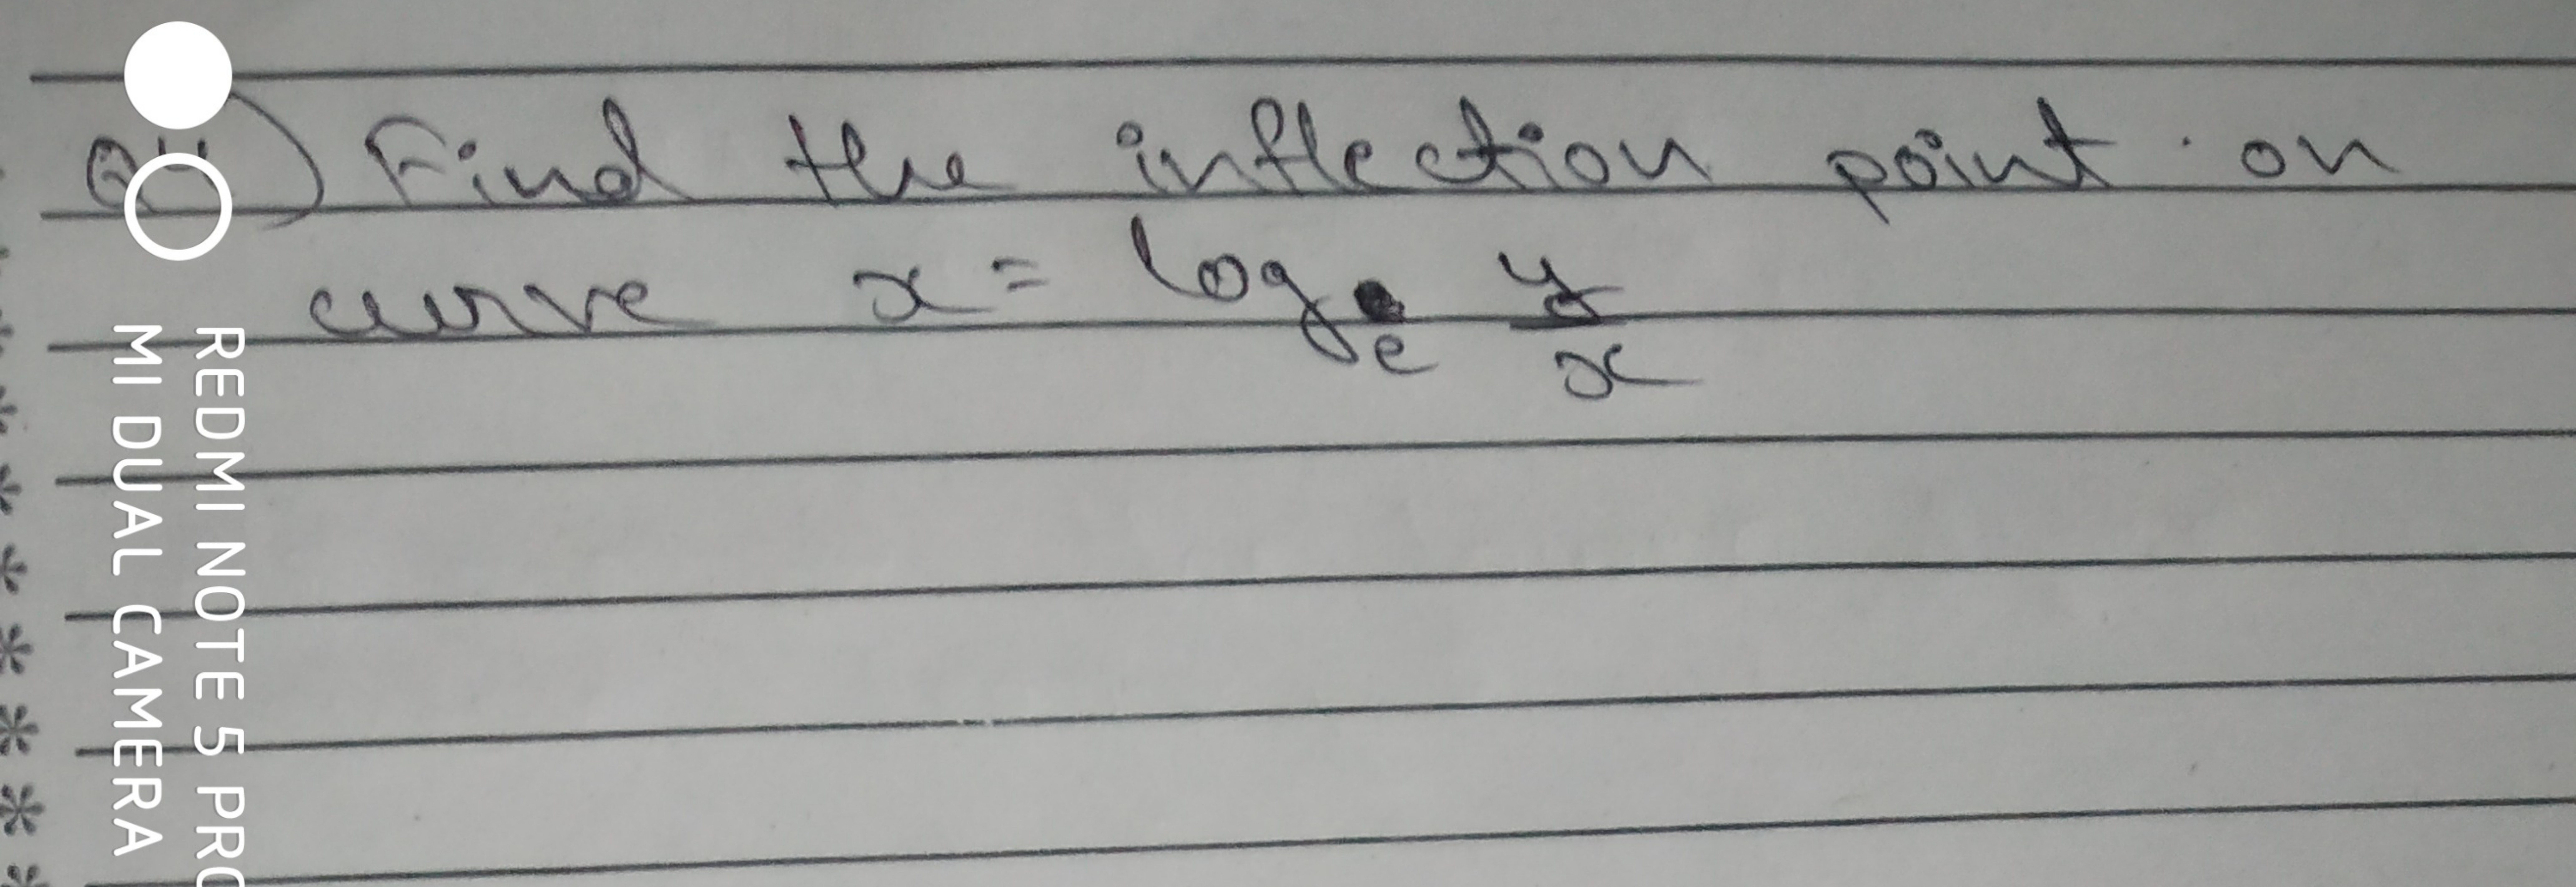 Find the inflection point on
curve x = log e y/x
REDMI NOTE 5 PRO
MI DUAL CAMERA